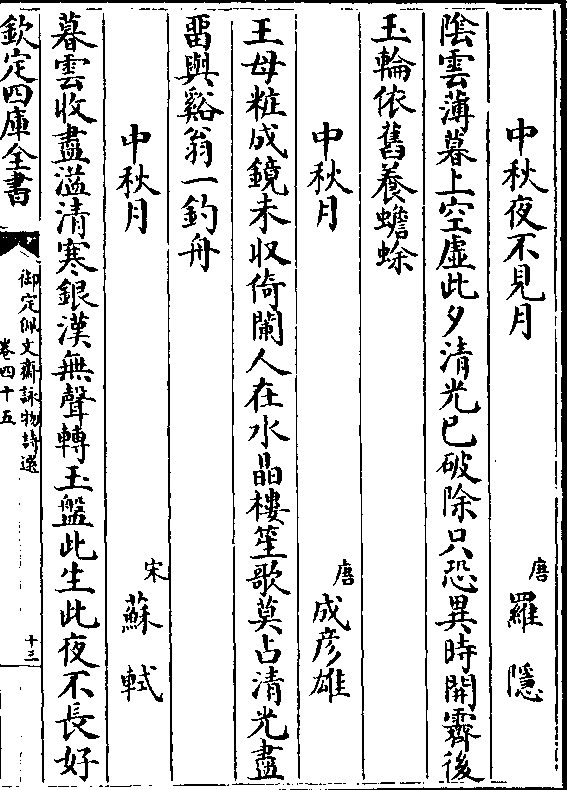 中秋夜不見月
唐羅隱
陰雲薄暮上空虛此夕清光已破除只恐異時開霽後
玉輪依舊養蟾蜍
中秋月
唐成彥雄
王母粧成鏡未収倚闌人在水晶樓笙歌莫占清光盡
畱與谿翁一釣舟
中秋月
宋蘇軾
暮雲收盡溢清寒銀漢無聲轉玉盤此生此夜不長好
欽定四庫全書
御定佩文齋詠物詩選
卷四十五
十三